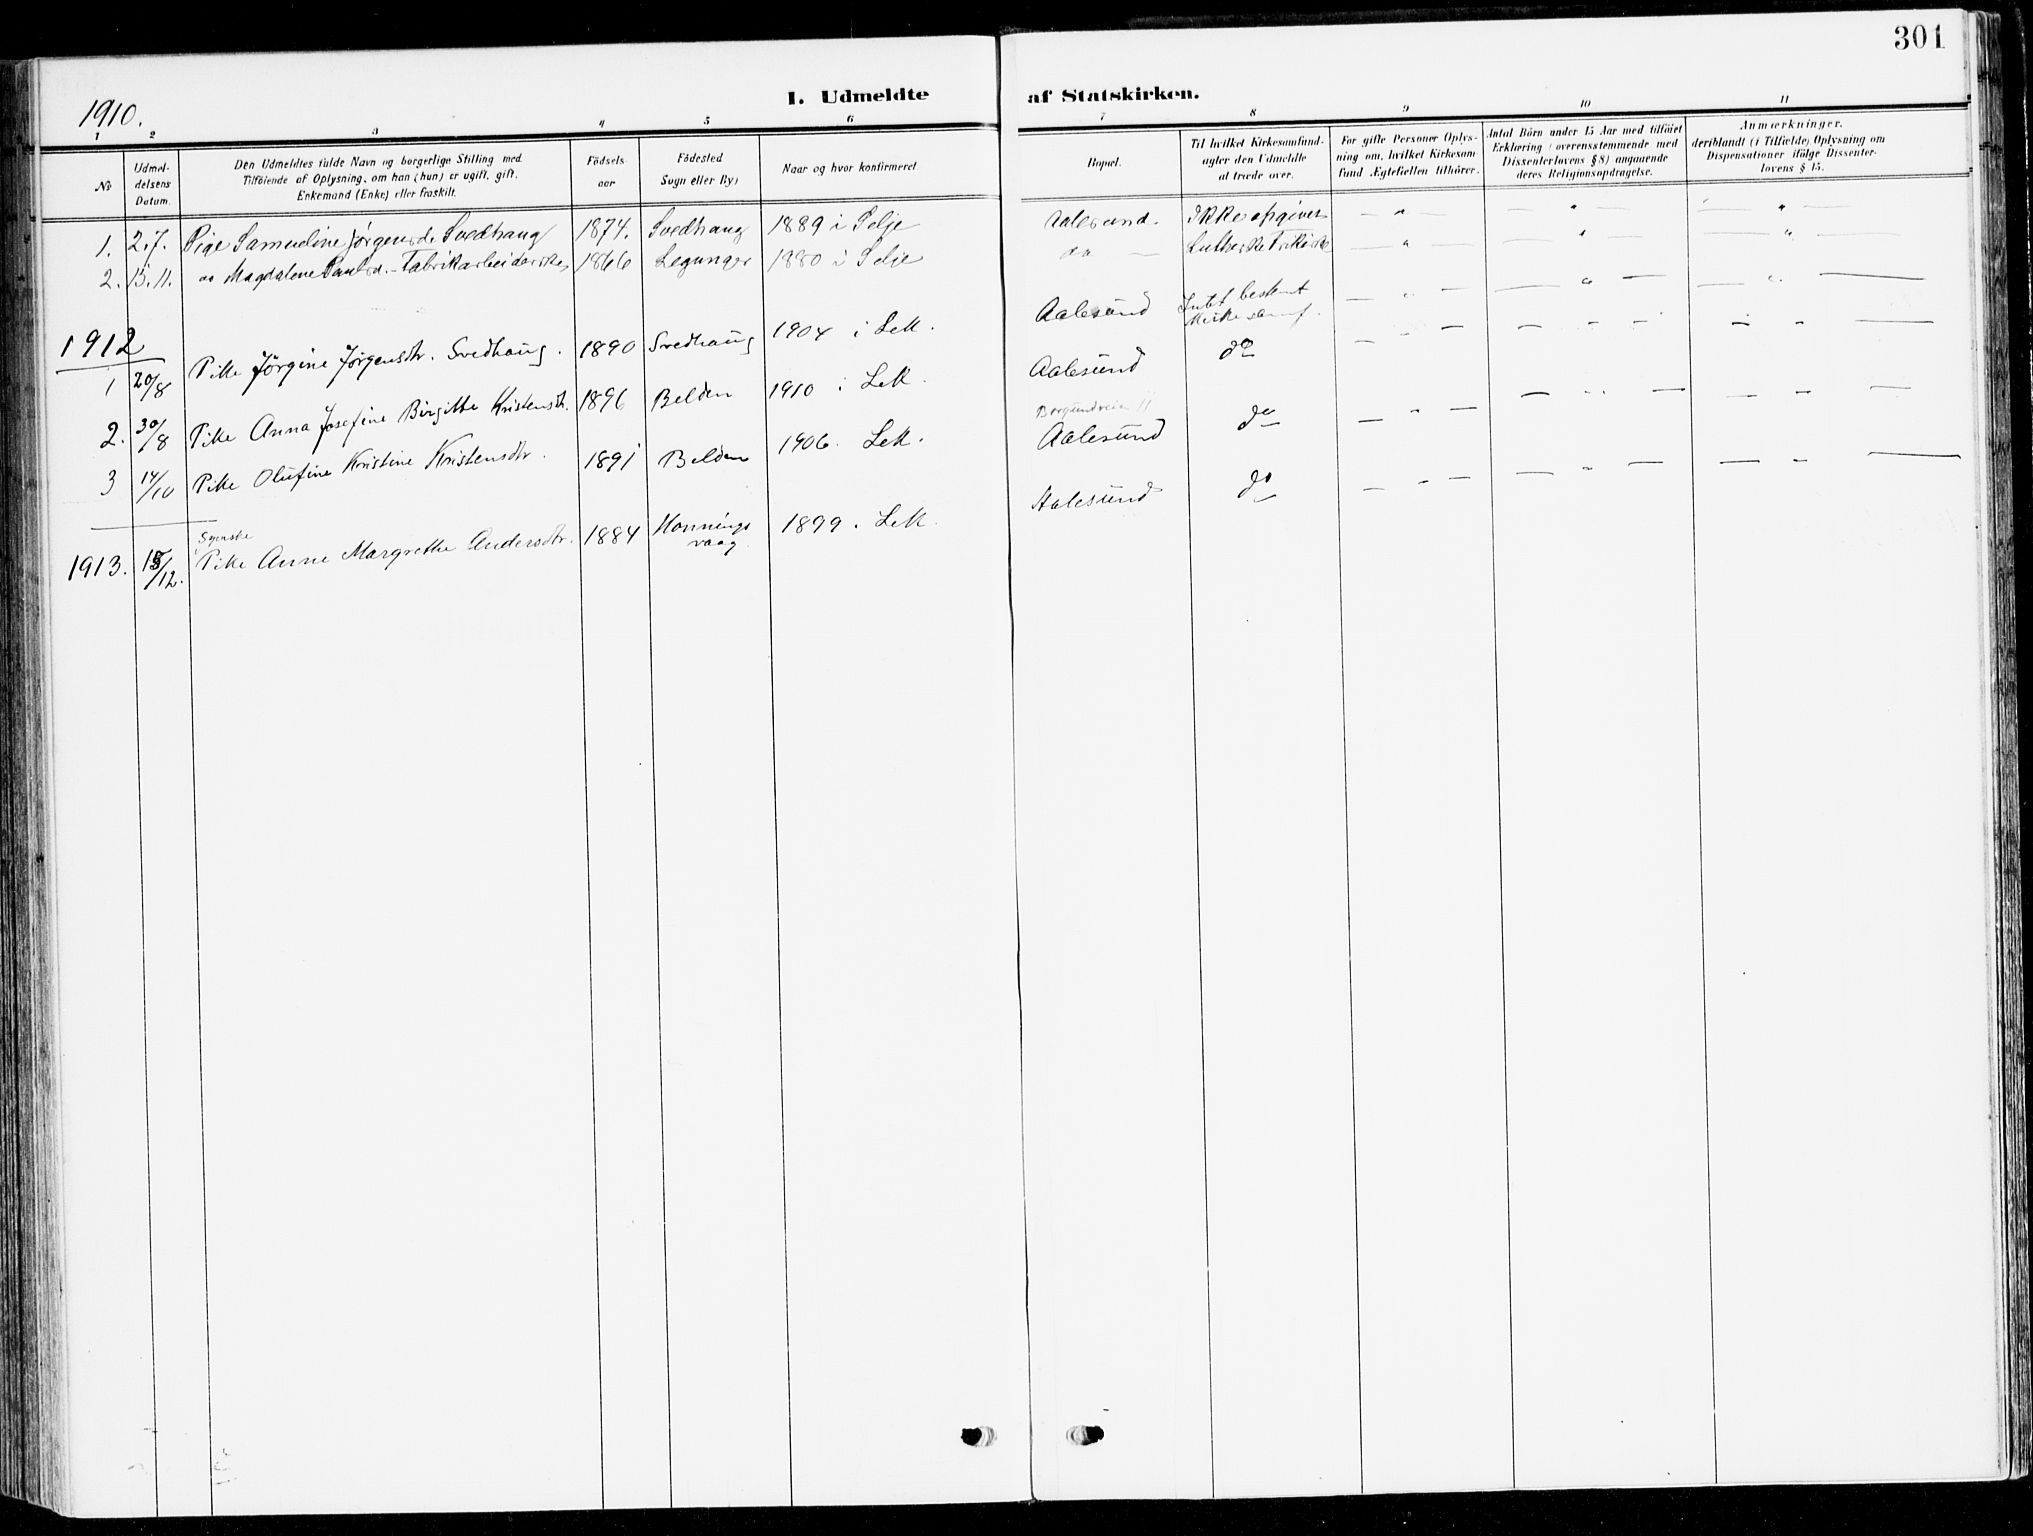 301
I. Udmeldte af Statskirken.
1910.
1 2 3 4 5 6 7 8 9 10 11
No
Udmel-
delsens
Datum.
Den Udmeldtes fulde Navn og borgerlige Stilling med
Tilföiende af Oplysning, om han (hun) er ugift, gift,
Enkemand (Enke) eller fraskilt.
Födsels-
aar
Födested
Sogn eller By)
Naar og hvor konfirmeret
Bopæl.
Til hvilket Kirkesamfund
agter den Udmeldte
at træde over.
For gifte Personer Oplys-
ning om, hvilket Kirkesam-
fund Ægtefællen tilhører.
Antal Børn under 15 Aar med tilföiet
Erklæring (overensstemmende med
Dissenterlovens § 8) angaaende
deres Religionsopdragelse.
Anmærkninger,
deriblandt (i Tilfælde) Oplysning om
Dispensationer ifölge Dissenter-
lovens § 15.
1. 2.7. Pige Samueline Jørgensd. Svedhaug 1874. Svedhaug 1889 i Selje Aalesund. Ikke opgivet — " — — " — — " —
2. 15.11. Magdalene Paulsd. - Fabrikarbeiderske 1866 1880 i Selje do — — " — " "
1912
1 20/8 Pike Jørgine Jørgensdtr. Svedhaug. 1890 Svedhaug 1904 i Aalesund bestemt — " — — " — — " —
2. 30/8 Pike Anna Josefine Birgitte Kristensdtr. 1896 Belden 1910 i Aalesund do — - — — - — — - —
Borgundveien 11
3 14/10 Pike Olufine Kristine Kristensdtr. 1891 Belden 1906. Aalesund do — " — — " — — - —
Syenske
1913. 15/12. Pike Anne Margrethe Andersdtr. 1884 Honnings
vaag. 1899. Aalesund do — - — — - — — - —